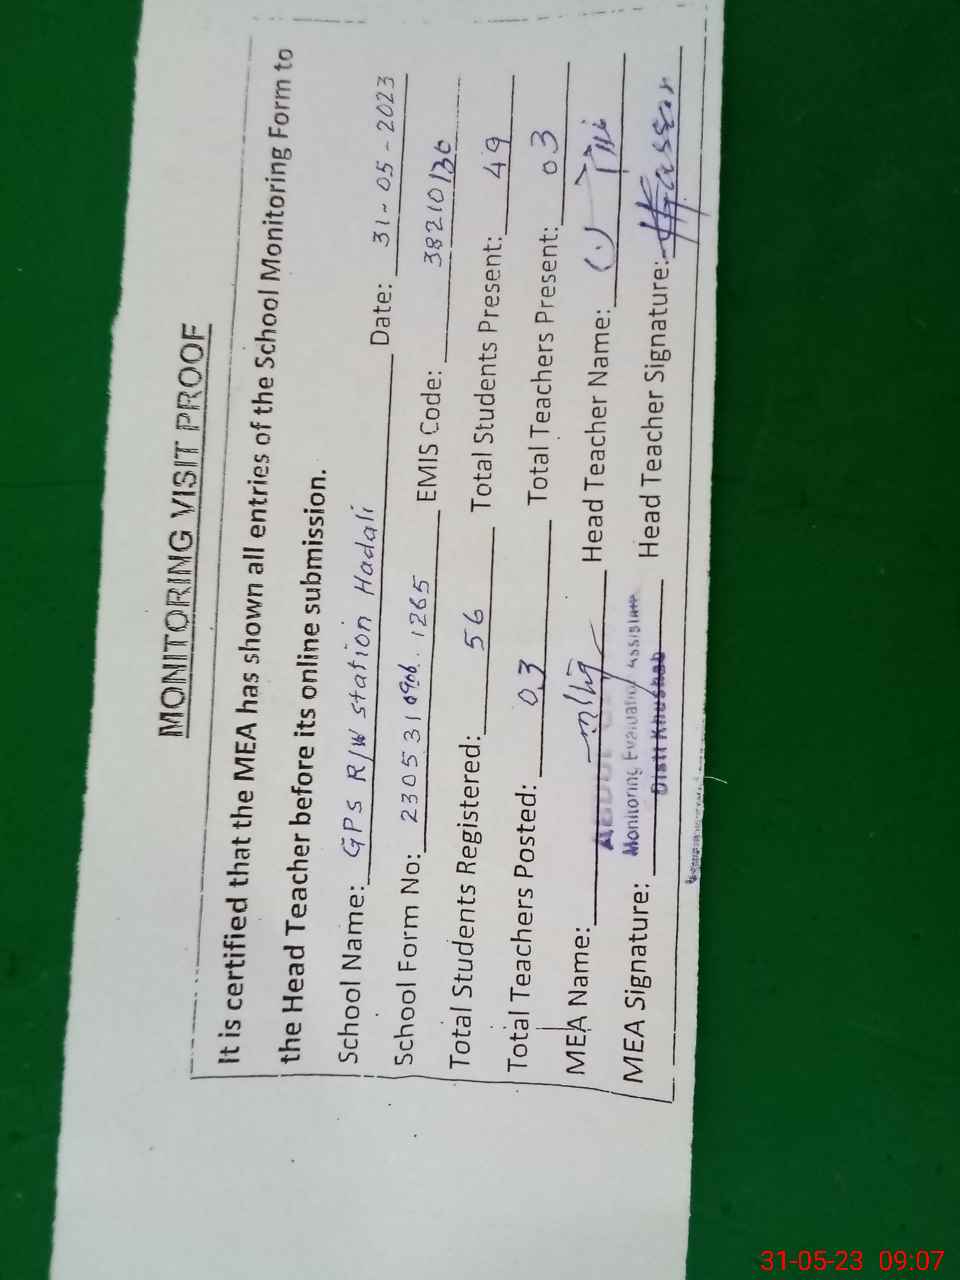 MONITORING VISIT PROOF
It is certified that the MEA has shown all entries of the School Monitoring Form to
the Head Teacher before its online submission.
School Name: GPS R/W Station Hadali Date: 31-05-2023
School Form No: 230531 1265 EMIS Code: 38210130
Total Students Registered: 56 Total Students Present: 49
Total Teachers Posted: 03 Total Teachers Present: 03
MEA Name: Head Teacher Name:
Monitoring Evaluation Assistant
MEA Signature: Head Teacher Signature:
Distt Khushab
31-05-23 09:07